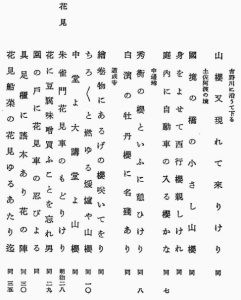 吉野川に沿うて下る
山櫻又現れて來りけり 同
土佐阿波の境
國境の橋の小さし山櫻 同
身をよせて西行櫻親しけれ 同
庭内に自動車の入る櫻かな 同 七
中邊路
秀衡の櫻といふに憩ひけり 同 八
道成寺
白濱の牡丹櫻に名殘あり 同
繪卷物にあるげの櫻咲いてをり 同
ちろ〱と燃ゆる煖爐や山櫻 同 一〇
中堂よ大講堂よ山櫻 同
花見
朱雀門花見車のもどりけり 明治二八
花に豆腐味噌買ふことを忘れ男 同 二九
園の戸に花見車の忍びよる 同
具足櫃に謠本あり花の陣 同 三〇
花見船菜の花見ゆるあたり迄 同 三五